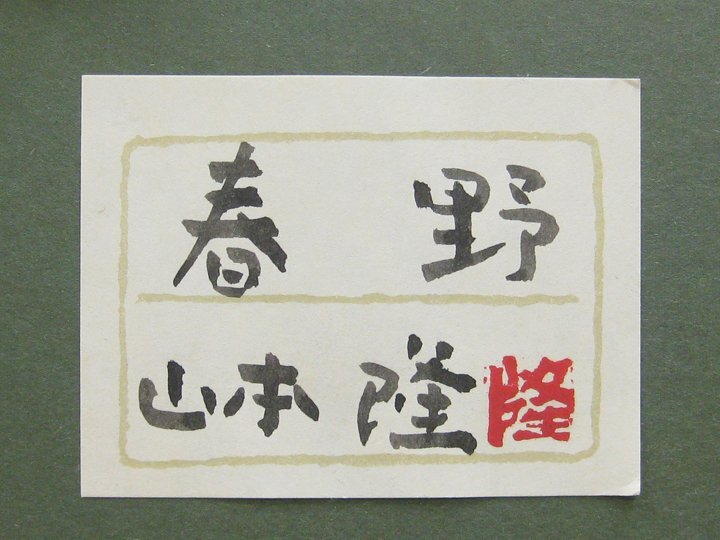 春野
山本隆 隆